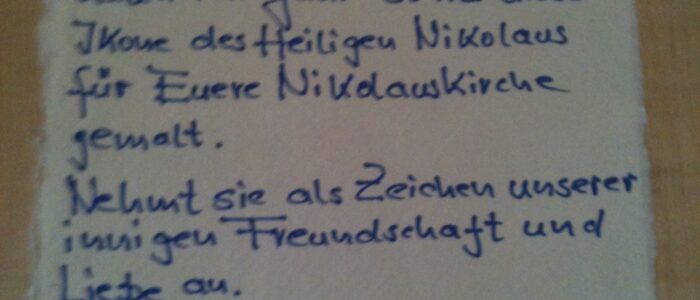 Ikone des Heiligen Nikolaus
für Euere Nikolauskirche
gemalt.
Nehmt sie als Zeichen unserer
innigen Freundschaft und
Liebe an.